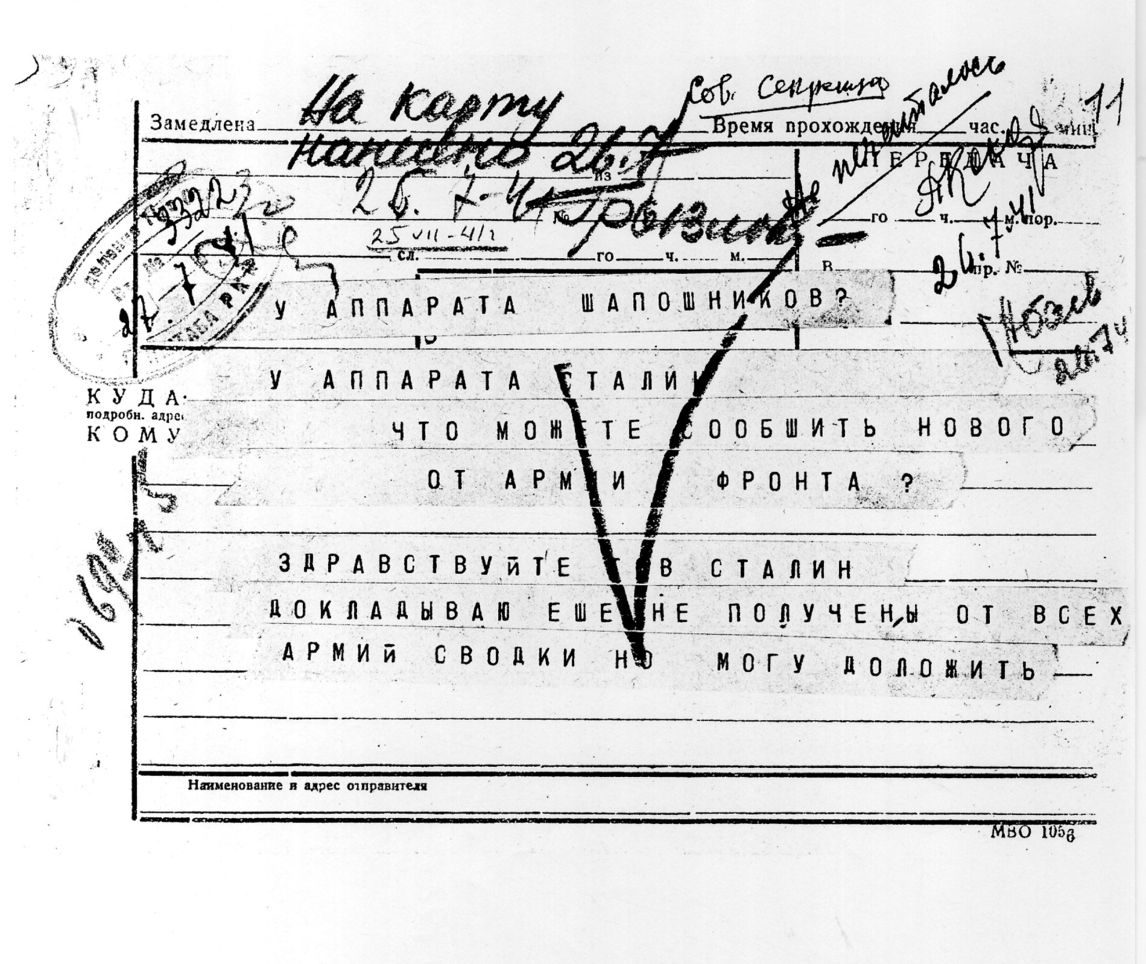 На карту
нанесено 26.7
Сов. секретно
11
Замедлена
Время прохождения час. мин.
ПЕРЕДАЧА
из
26. 7-41
25 VII-41г
№
го ч. м. пор.
26.7.41
сл. го ч. м.
В пр. №
У АППАРАТА ШАПОШНИКОВ?
У АППАРАТА СТАЛИН
КУДА
подробн. адрес
КОМУ
ЧТО МОЖЕТЕ СООБШИТЬ НОВОГО
ОТ АРМИИ ФРОНТА ?
ЗДРАВСТВУйТЕ ТОВ СТАЛИН
ДОКЛАДЫВАЮ ЕШЕ НЕ ПОЛУЧЕНЫ ОТ ВСЕХ
АРМИй СВОДКИ НО МОГУ ДОЛОЖИТЬ
Наименование и адрес отправителя
МВО 1056